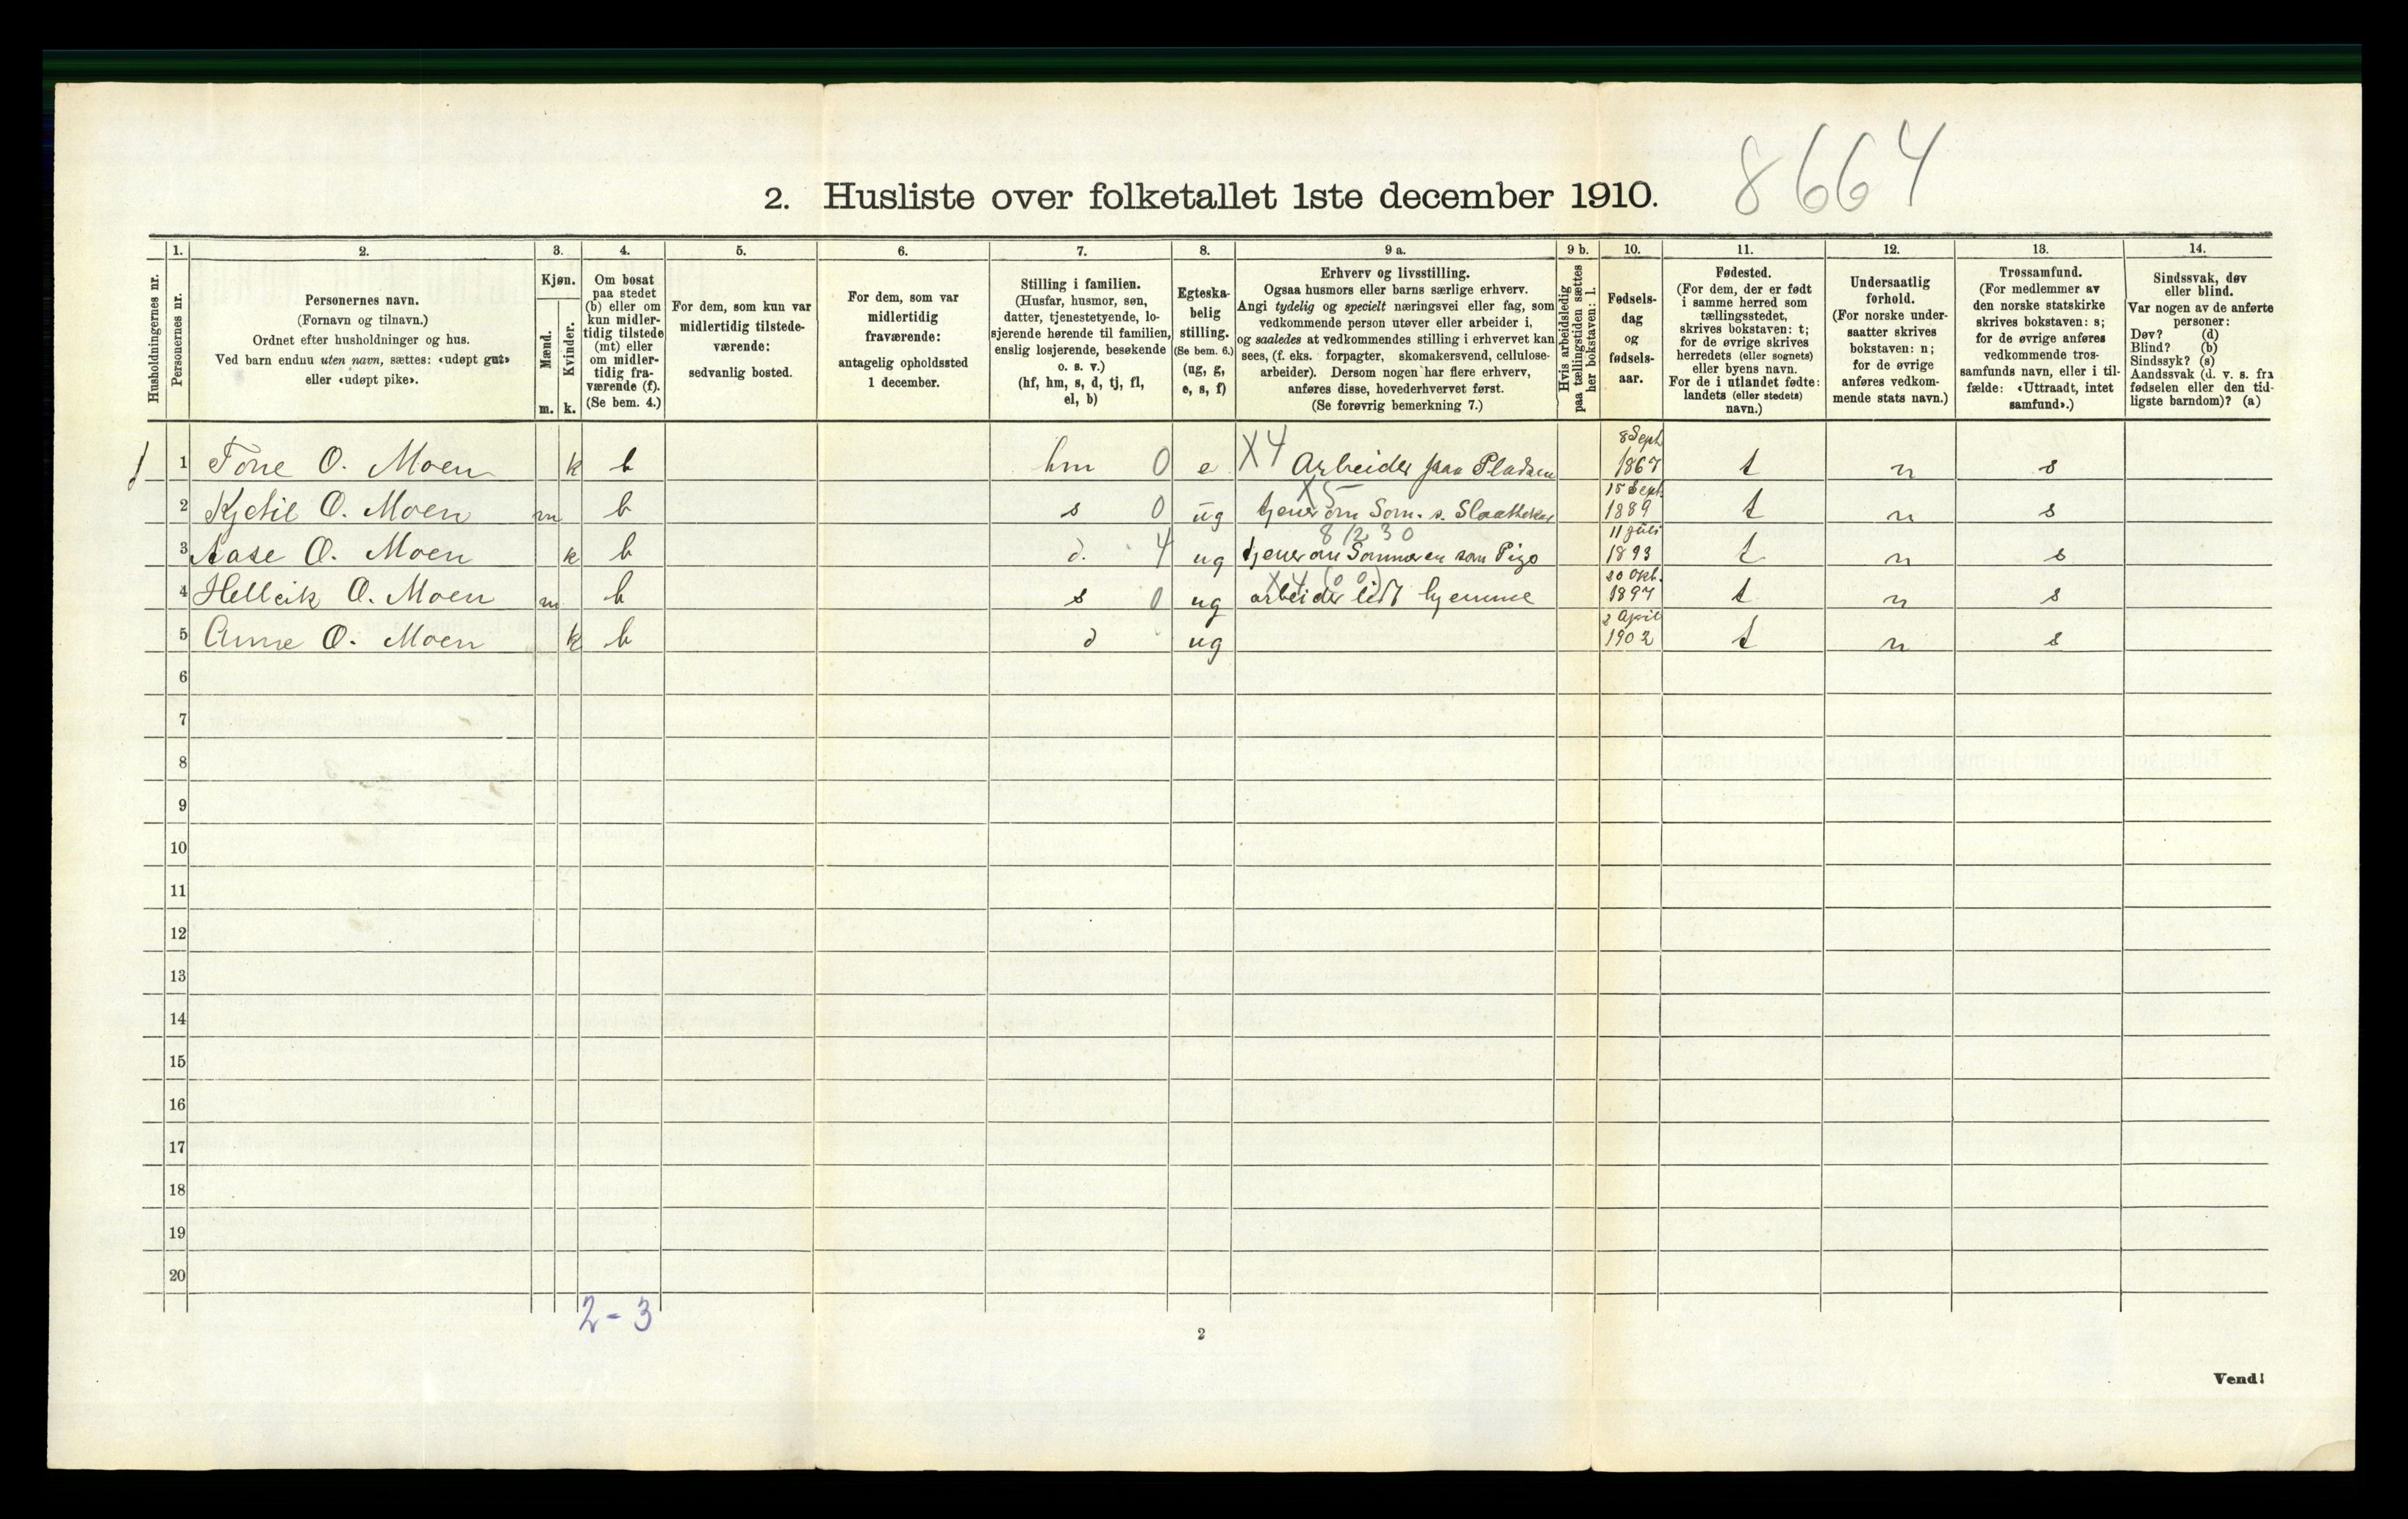 8664
2. Husliste over folketallet 1ste december 1910.
Husholdningernes nr.
1. Personernes nr.
2. Personernes navn. (Fornavn og tilnavn.) Ordnet efter husholdninger og hus. Ved barn endnu uten navn, sættes: «udøpt gut» eller «udøpt pike».
3. Kjøn. Mænd. m. Kvinder. k.
4. Om bosat paa stedet (b) eller om kun midlertidig tilstede (mt) eller om midlertidig fraværende (f). (Se bem. 4.)
5. For dem, som kun var midlertidig tilstedeværende: sedvanlig bosted.
6. For dem, som var midlertidig fraværende: antagelig opholdssted 1 december.
7. Stilling i familien. (Husfar, husmor, søn, datter, tjenestetyende, losjerende hørende til familien, enslig losjerende, besøkende o. s. v.) (hf, hm, s, d, tj, fl, el, b)
8. Egteskabelig stilling. (Se bem. 6.) (ug, g, e, s, f)
9 a. Erhverv og livsstilling. Ogsaa husmors eller barns særlige erhverv. Angi tydelig og specielt næringsvei eller fag, som vedkommende person utøver eller arbeider i, og saaledes at vedkommendes stilling i erhvervet kan sees, (f. eks. forpagter, skomakersvend, cellulosearbeider). Dersom nogen har flere erhverv, anføres disse, hovederhvervet først. (Se forøvrig bemerkning 7.)
9 b. Hvis arbeidsledig paa tællingstiden sættes her bokstaven: l.
10. Fødselsdag og fødselsaar.
11. Fødested. (For dem, der er født i samme herred som tællingsstedet, skrives bokstaven: t; for de øvrige skrives herredets (eller sognets) eller byens navn. For de i utlandet fødte: landets (eller stedets) navn.)
12. Undersaatlig forhold. (For norske undersaatter skrives bokstaven: n; for de øvrige anføres vedkommende stats navn.)
13. Trossamfund. (For medlemmer av den norske statskirke skrives bokstaven: s; for de øvrige anføres vedkommende trossamfunds navn, eller i tilfælde: «Uttraadt, intet samfund».)
14. Sindssvak, døv eller blind. Var nogen av de anførte personer: Døv? (d) Blind? (b) Sindssyk? (s) Aandssvak (d. v. s. fra fødselen eller den tidligste barndom)? (a)
1 1 Tone O. Moen k b hm 0 e X4 Arbeider paa Pladsen 8 Sept 1867 t n s
2 Kjetil O. Moen m b s 0 ug X5 tjener om Som. s. 15 Sept. 1889 t n s
3 Aase O. Moen k b d. 4 ug 8/230 tjener om Sommeren som Pige 11 juli 1893 t n s
4 Helleik O. Moen m b s 0 ug X4 (00) arbeider lidt hjemme 20 Okt. 1897 t n s
5 Anne O. Moen k b d ug 2 April 1902 t n s
6
7
8
9
10
11
12
13
14
15
16
17
18
19
20
2-3
2
Vend!